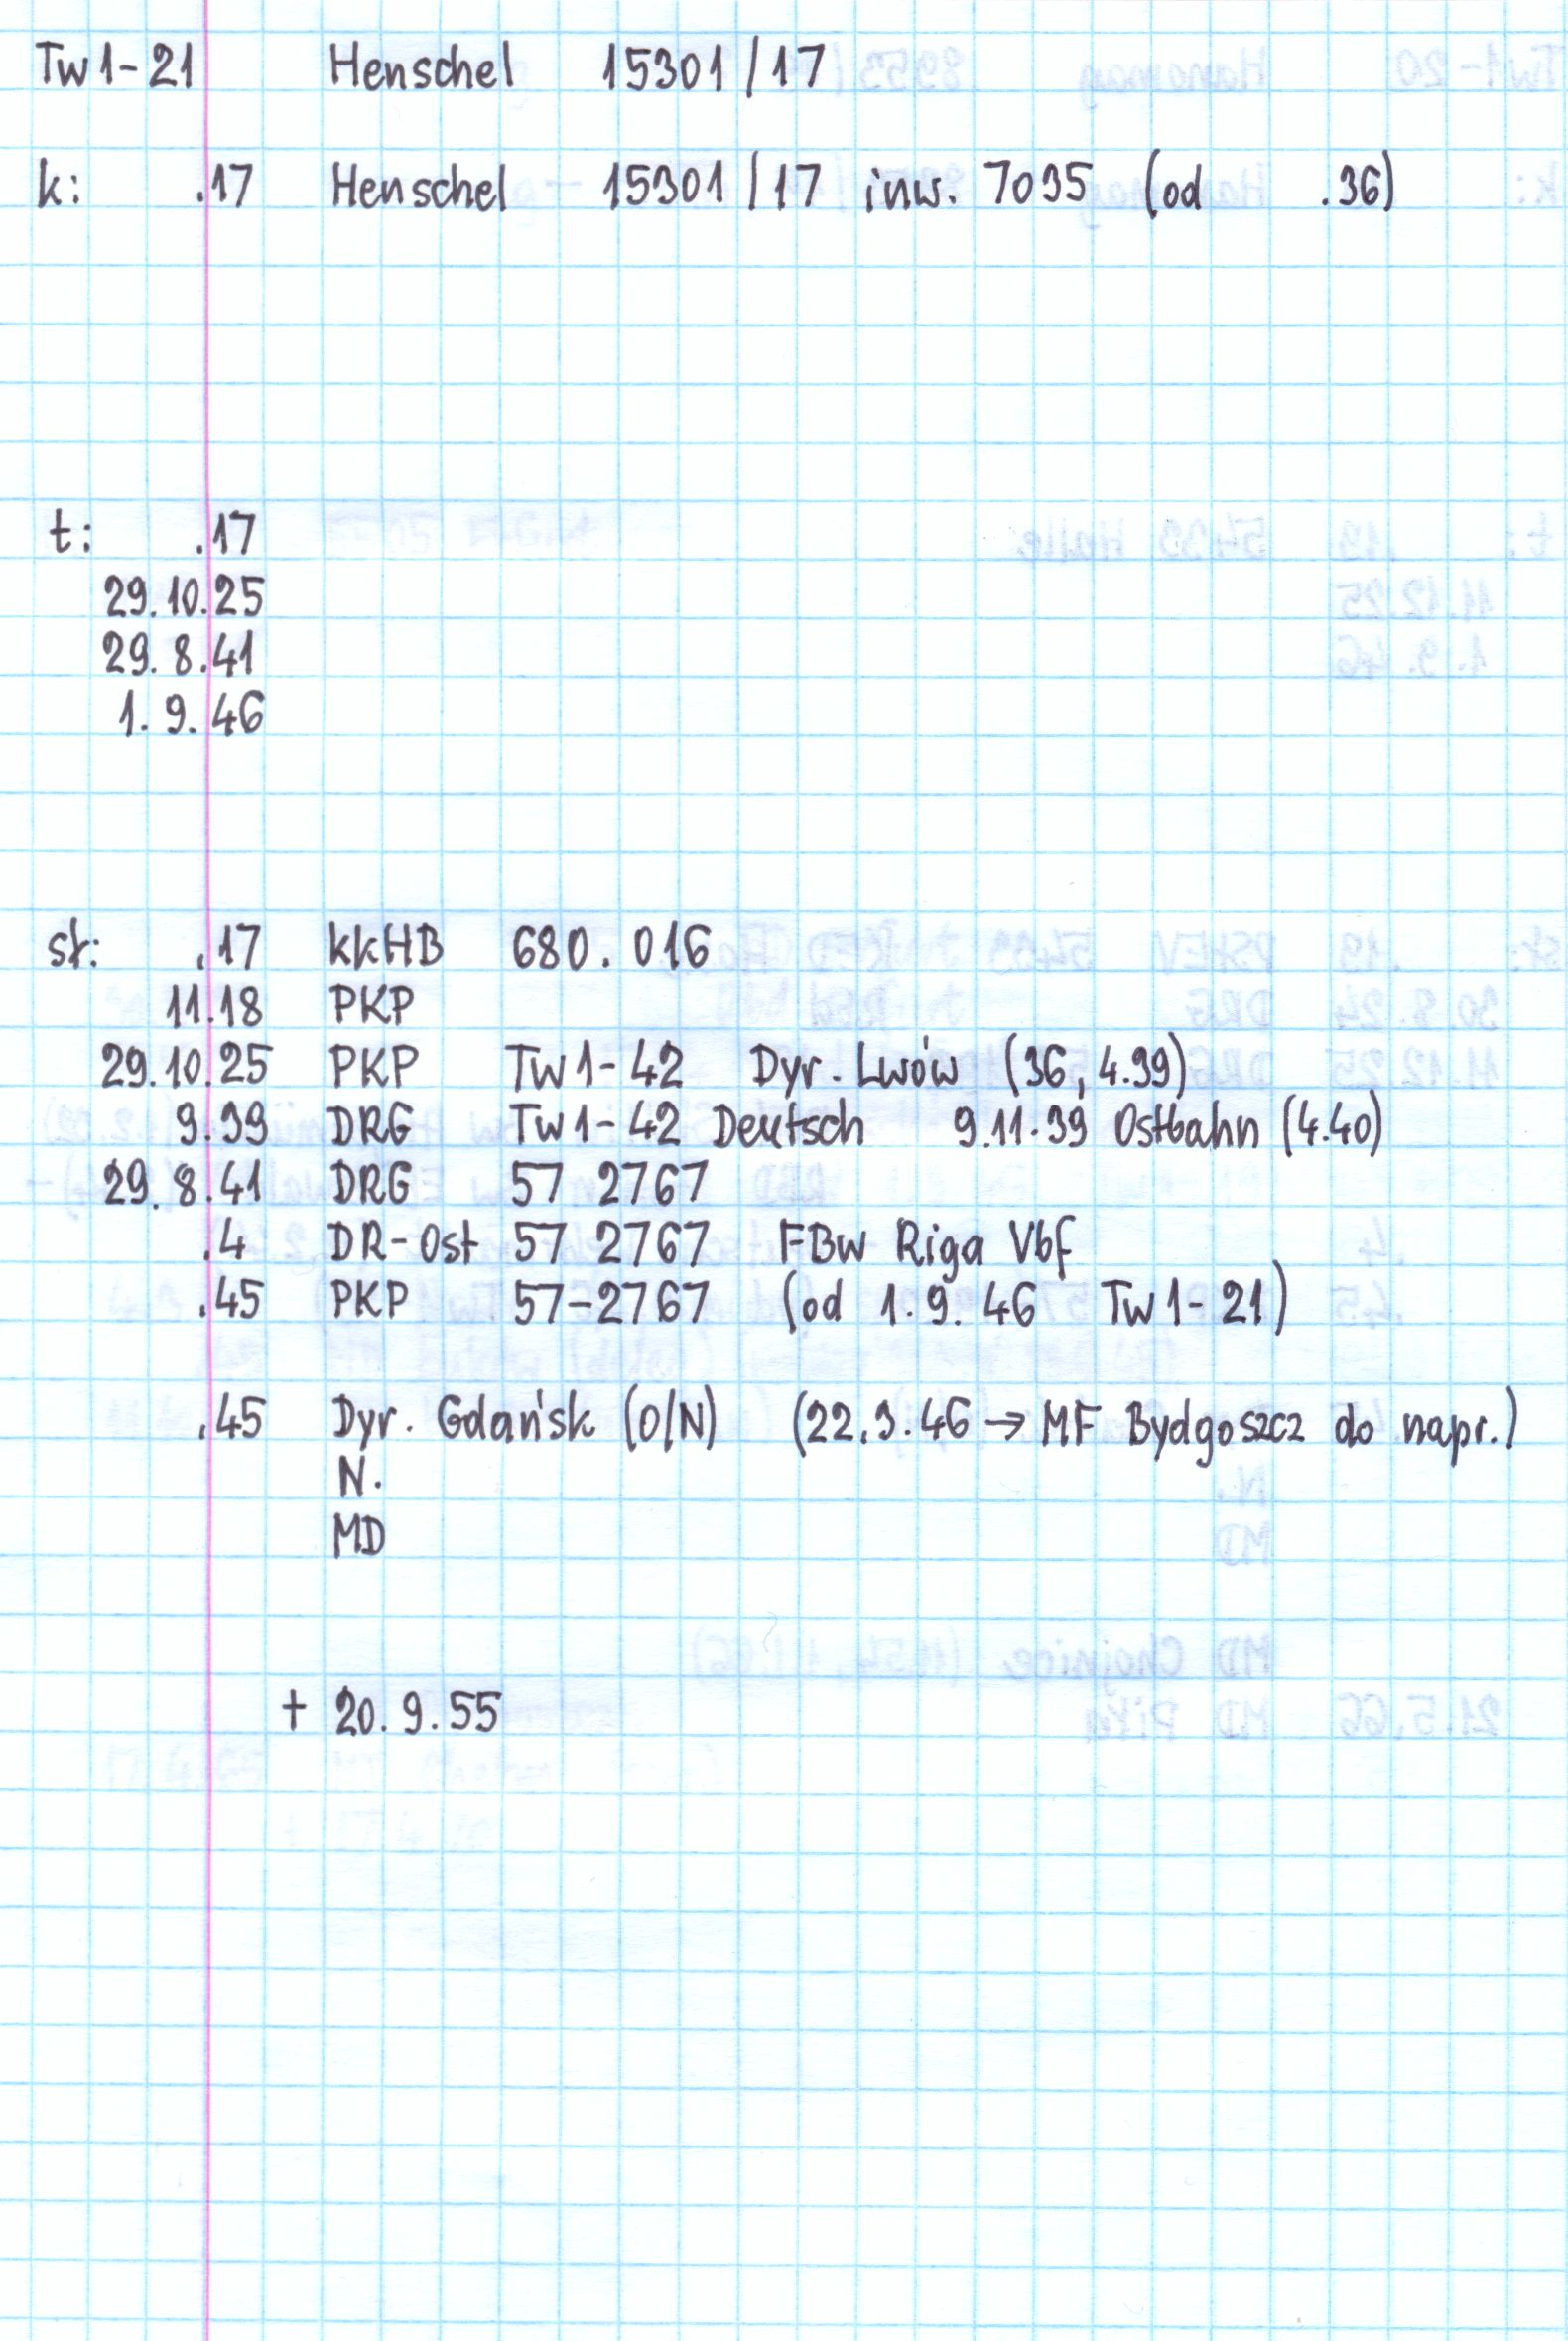 Tw1-21 Henschel 15301/17
k: .17 Henschel 15301/17 inw. 7095 (od .36)
t: .17
29.10.25
29.8.41
1.9.46
st: .17 kkHB 680.016
11.18 PKP
29.10.25 PKP Tw1-42 Dyr. Lwów (36, 4.39)
9.39 DRG Tw1-42 Deutsch 9.11.39 Ostbahn (4.40)
29.8.41 DRG 57 2767
.4 DR-Ost 57 2767 FBw Riga Vbf
.45 PKP 57-2767 (od 1.9.46 Tw1-21)
.45 Dyr. Gdańsk (O/N) (22.9.46 → MF Bydgoszcz do napr.)
N.
MD
+ 20.9.55